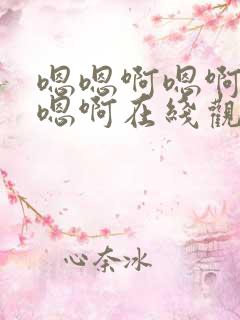 嗯嗯啊嗯啊
嗯啊在綫觀
心奈冰